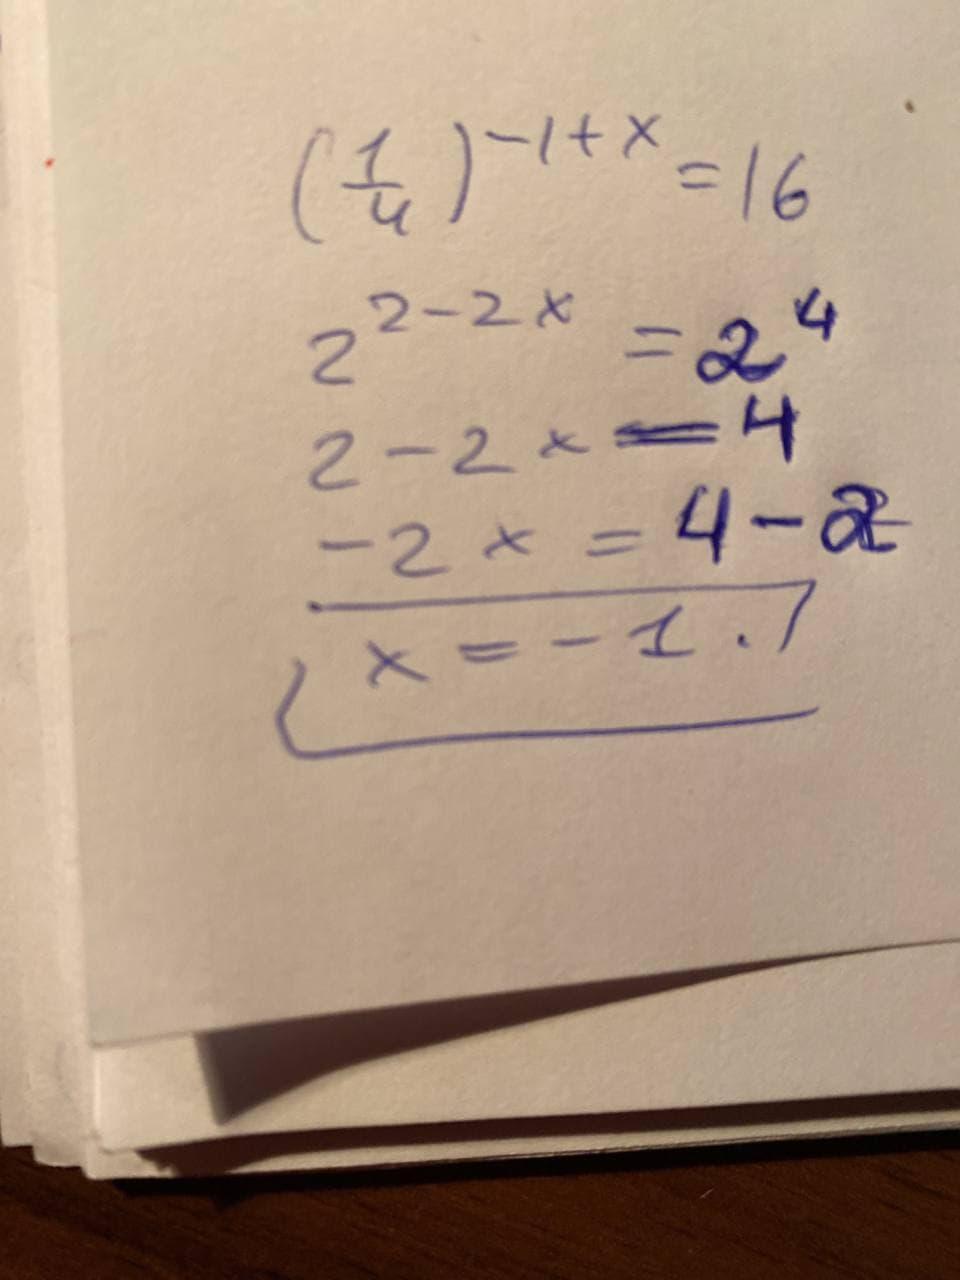 (1/4)^-1+x = 16
2^2-2x = 2^4
2-2x = 4
-2x = 4-2
x = -1.